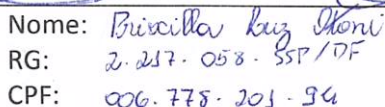 Nome: Priscilla Luz
RG: 2.217.058. SSP/DF
CPF: 006.778.201-94